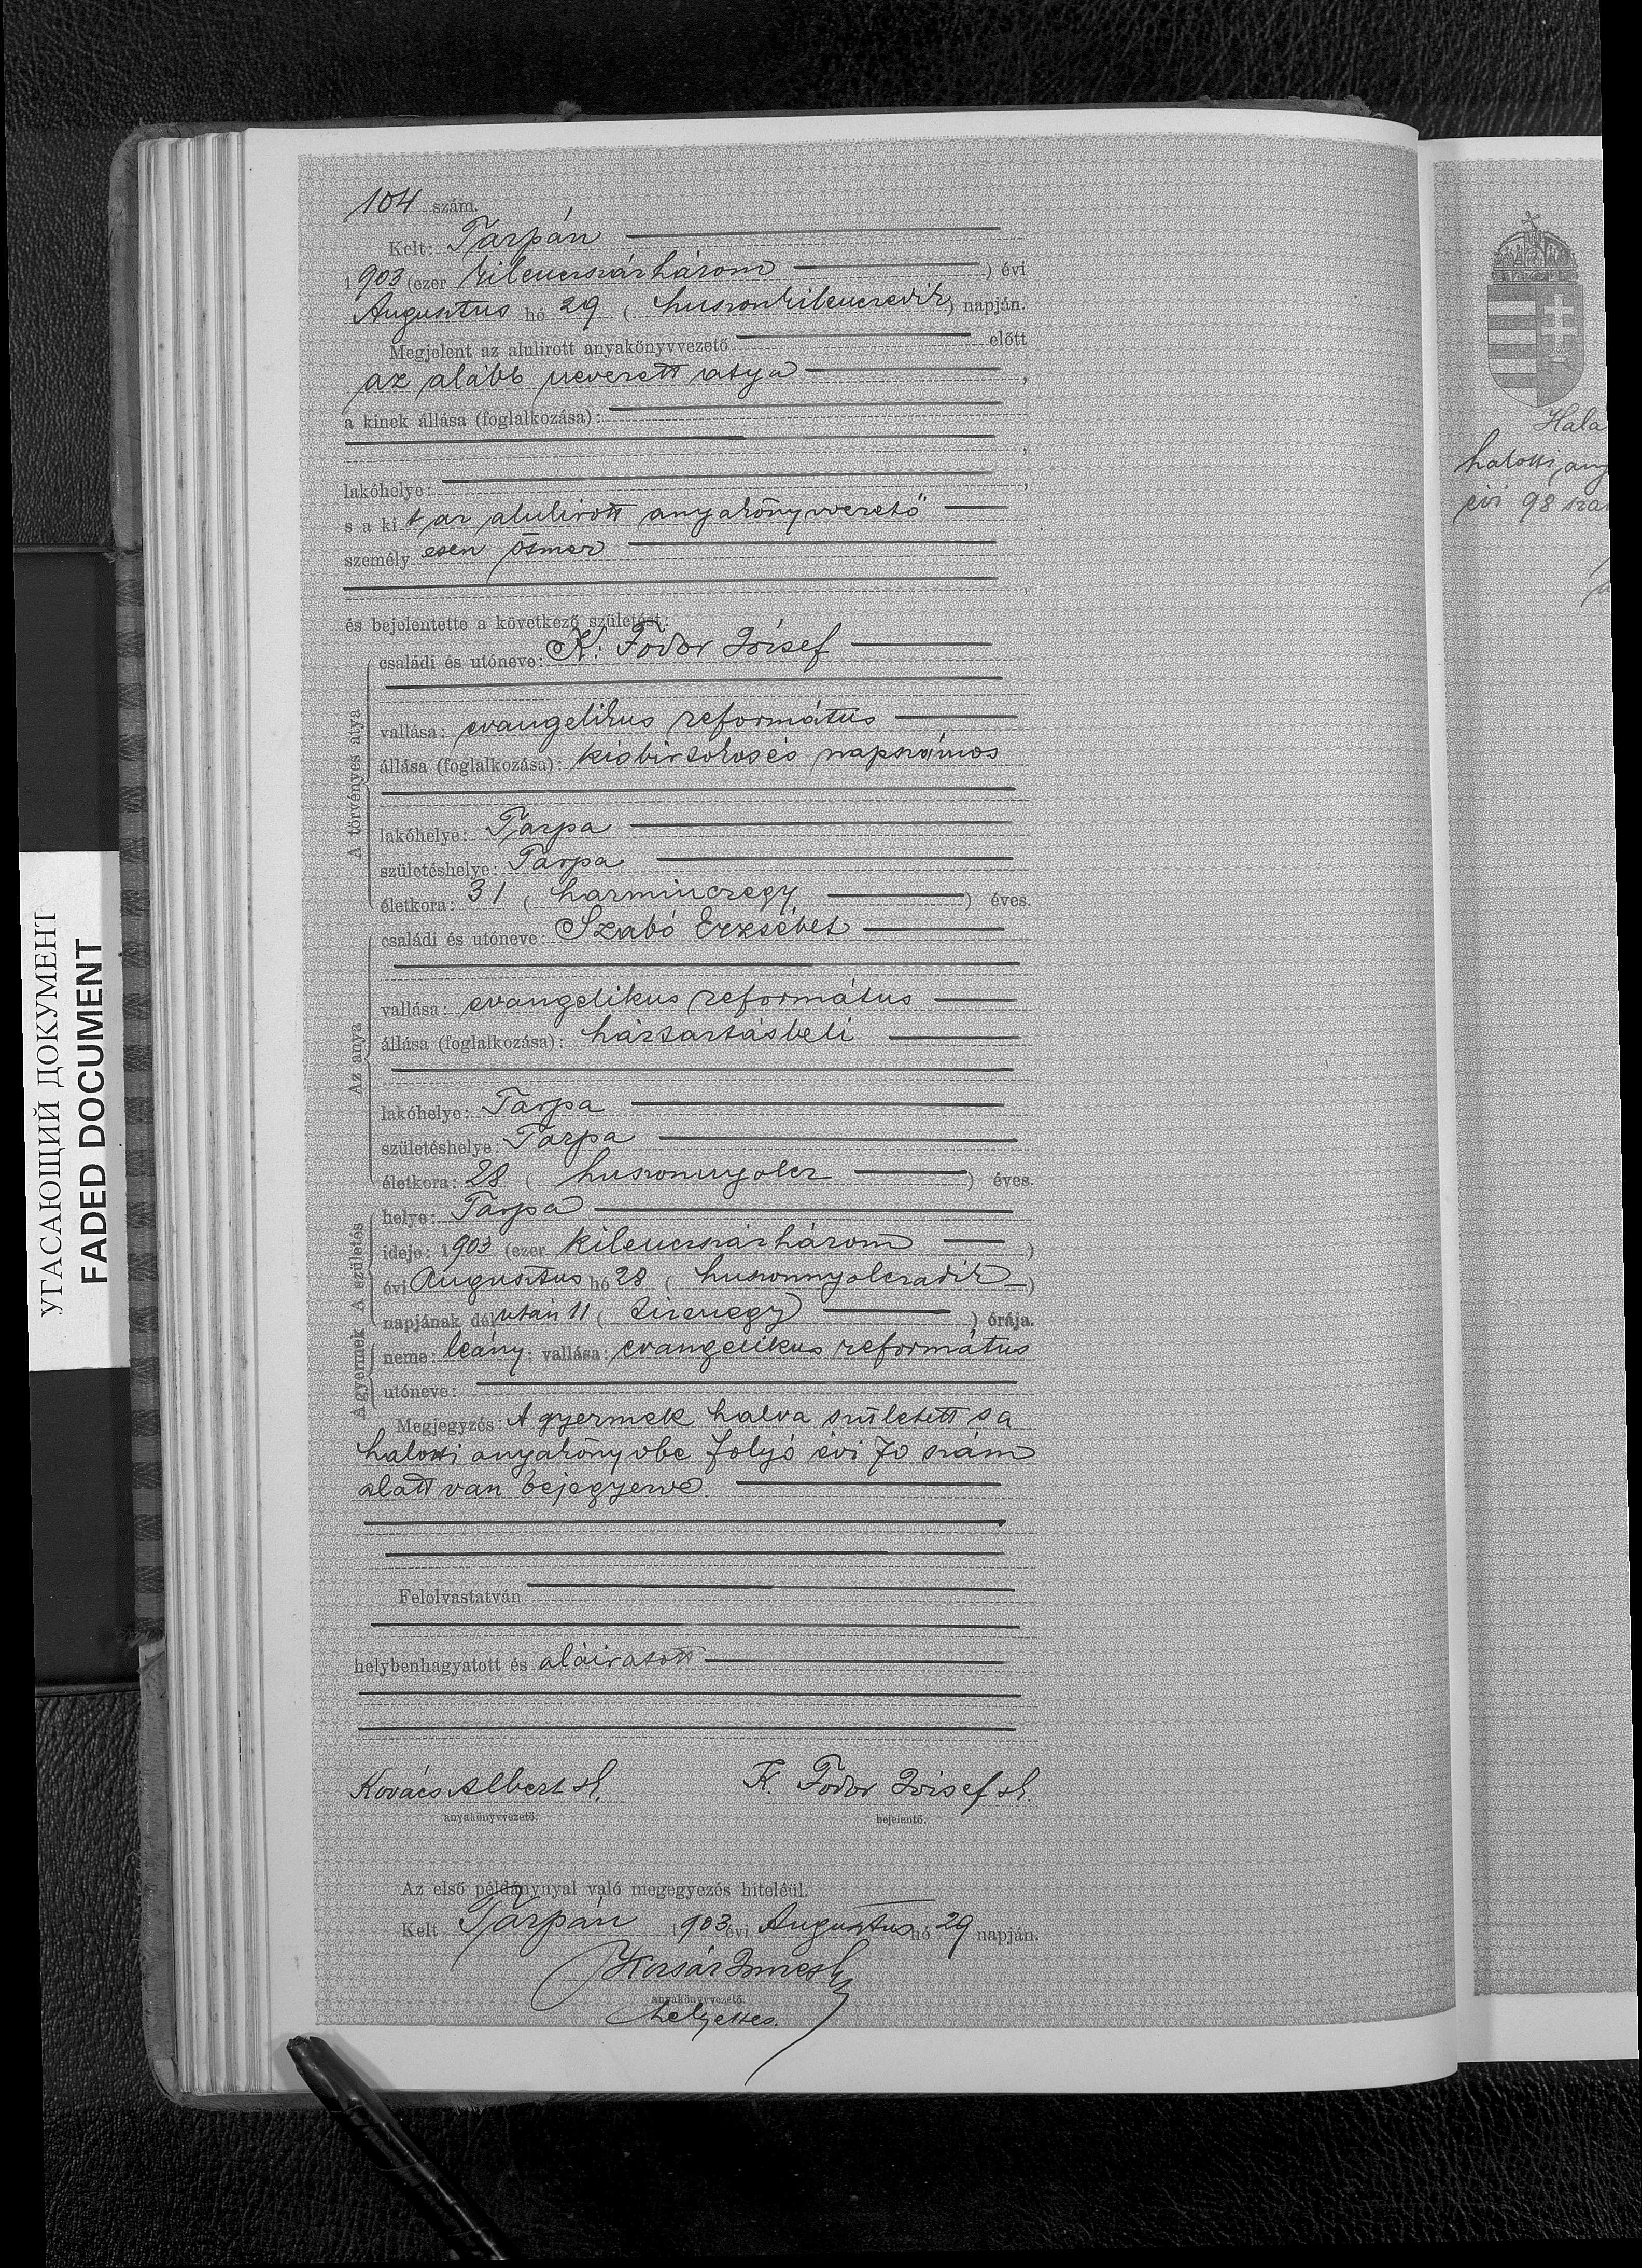 104 szám.
Kelt: Tarpán
1903 (ezer kilenczszázhárom) évi
Augusztus hó 29 (huszonkilenczedik) napján.
Megjelent az alulirott anyakönyvvezető előtt
az alább nevezett atya,
a kinek állása (foglalkozása):
,
lakóhelye:,
s a kit az alulirott anyakönyvvezető
személyesen ösmer
,
és bejelentette a következő születést:
A törvényes atya
családi és utóneve: K. Fodor József
vallása: evangelikus református
állása (foglalkozása): kisbirtokos és napszámos
lakóhelye: Tarpa
születéshelye: Tarpa
életkora: 31 (harminczegy) éves.
Az anya
családi és utóneve: Szabó Erzsébet
vallása: evangelikus református
állása (foglalkozása): háztartásbeli
lakóhelye: Tarpa
születéshelye: Tarpa
életkora: 28 (huszonnyolcz) éves.
A születés
helye: Tarpa
ideje: 1903 (ezer kilenczszázhárom)
évi Augusztus hó 28 (huszonnyolczadik)
napjának délután 11 (tizenegy) órája.
A gyermek
neme: leány; vallása: evangelikus református
utóneve:
Megjegyzés: A gyermek halva született s a
halotti anyakönyvbe folyó évi 70 szám
alatt van bejegyezve.
Felolvastatván
helybenhagyatott és aláiratott
Kovács Albert sk. K. Fodor József sk.
anyakönyvvezető. bejelentő.
Az első példánynyal való megegyezés hiteléül.
Kelt Tarpán 1903 évi Augusztus hó 29 napján.
anyakönyvvezető.
helyettes.
Hala
halotti any
évi 98 szá
УГАСАЮЩИЙ ДОКУМЕНТ
FADED DOCUMENT